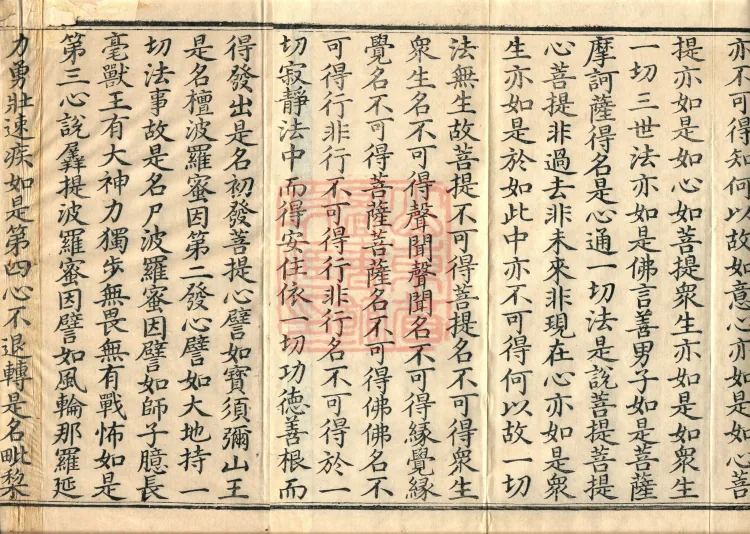 亦不可得知何以故如意心亦如是如心菩
提亦如是如心如菩提衆生亦如是如衆生
一切三世法亦如是佛言善男子如是菩薩
摩訶薩得名是心通一切法是說菩提菩提
心菩提非過去非未來非現在心亦如是衆
生亦如是於如此中亦不可得何以故一切
法無生故菩提不可得菩提名不可得衆生
衆生名不可得聲聞聲聞名不可得緣覺緣
覺名不可得菩薩菩薩名不可得佛佛名不
可得行非行不可得行非行名不可得於一
切寂靜法中而得安住依一切功德善根而
得發出是名初發菩提心譬如寶須彌山王
是名檀波羅蜜因第二發心譬如大地持一
切法事故是名尸波羅蜜因譬如師子臆長
毫獸王有大神力獨步無畏無有戰怖如是
第三心說羼提波羅蜜因譬如風輪那羅延
力勇壯速疾如是第四心不退轉是名毗黎